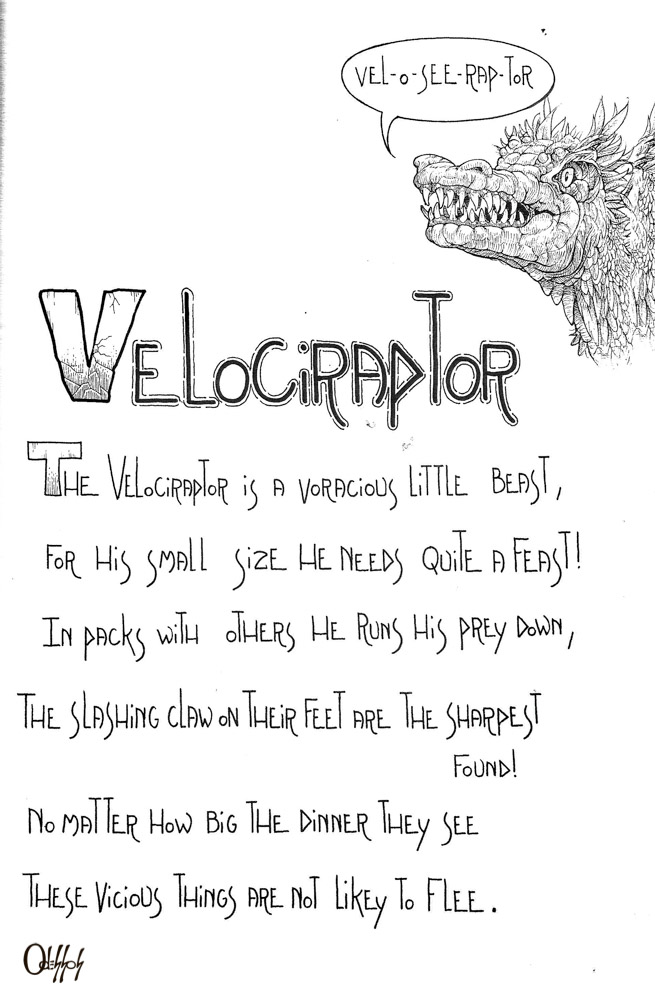 VEL-O-SEE-RAP-TOR
VELOCIRAPTOR
THE VELOCIRAPTOR IS A VORACIOUS LITTLE BEAST,
FOR HIS SMALL SIZE HE NEEDS QUITE A FEAST!
IN PACKS WITH OTHERS HE RUNS HIS PREY DOWN,
THE SLASHING CLAW ON THEIR FEET ARE THE SHARPEST
FOUND!
NO MATTER HOW BIG THE DINNER THEY SEE
THESE VICIOUS THINGS ARE NOT LIKEY TO FLEE.